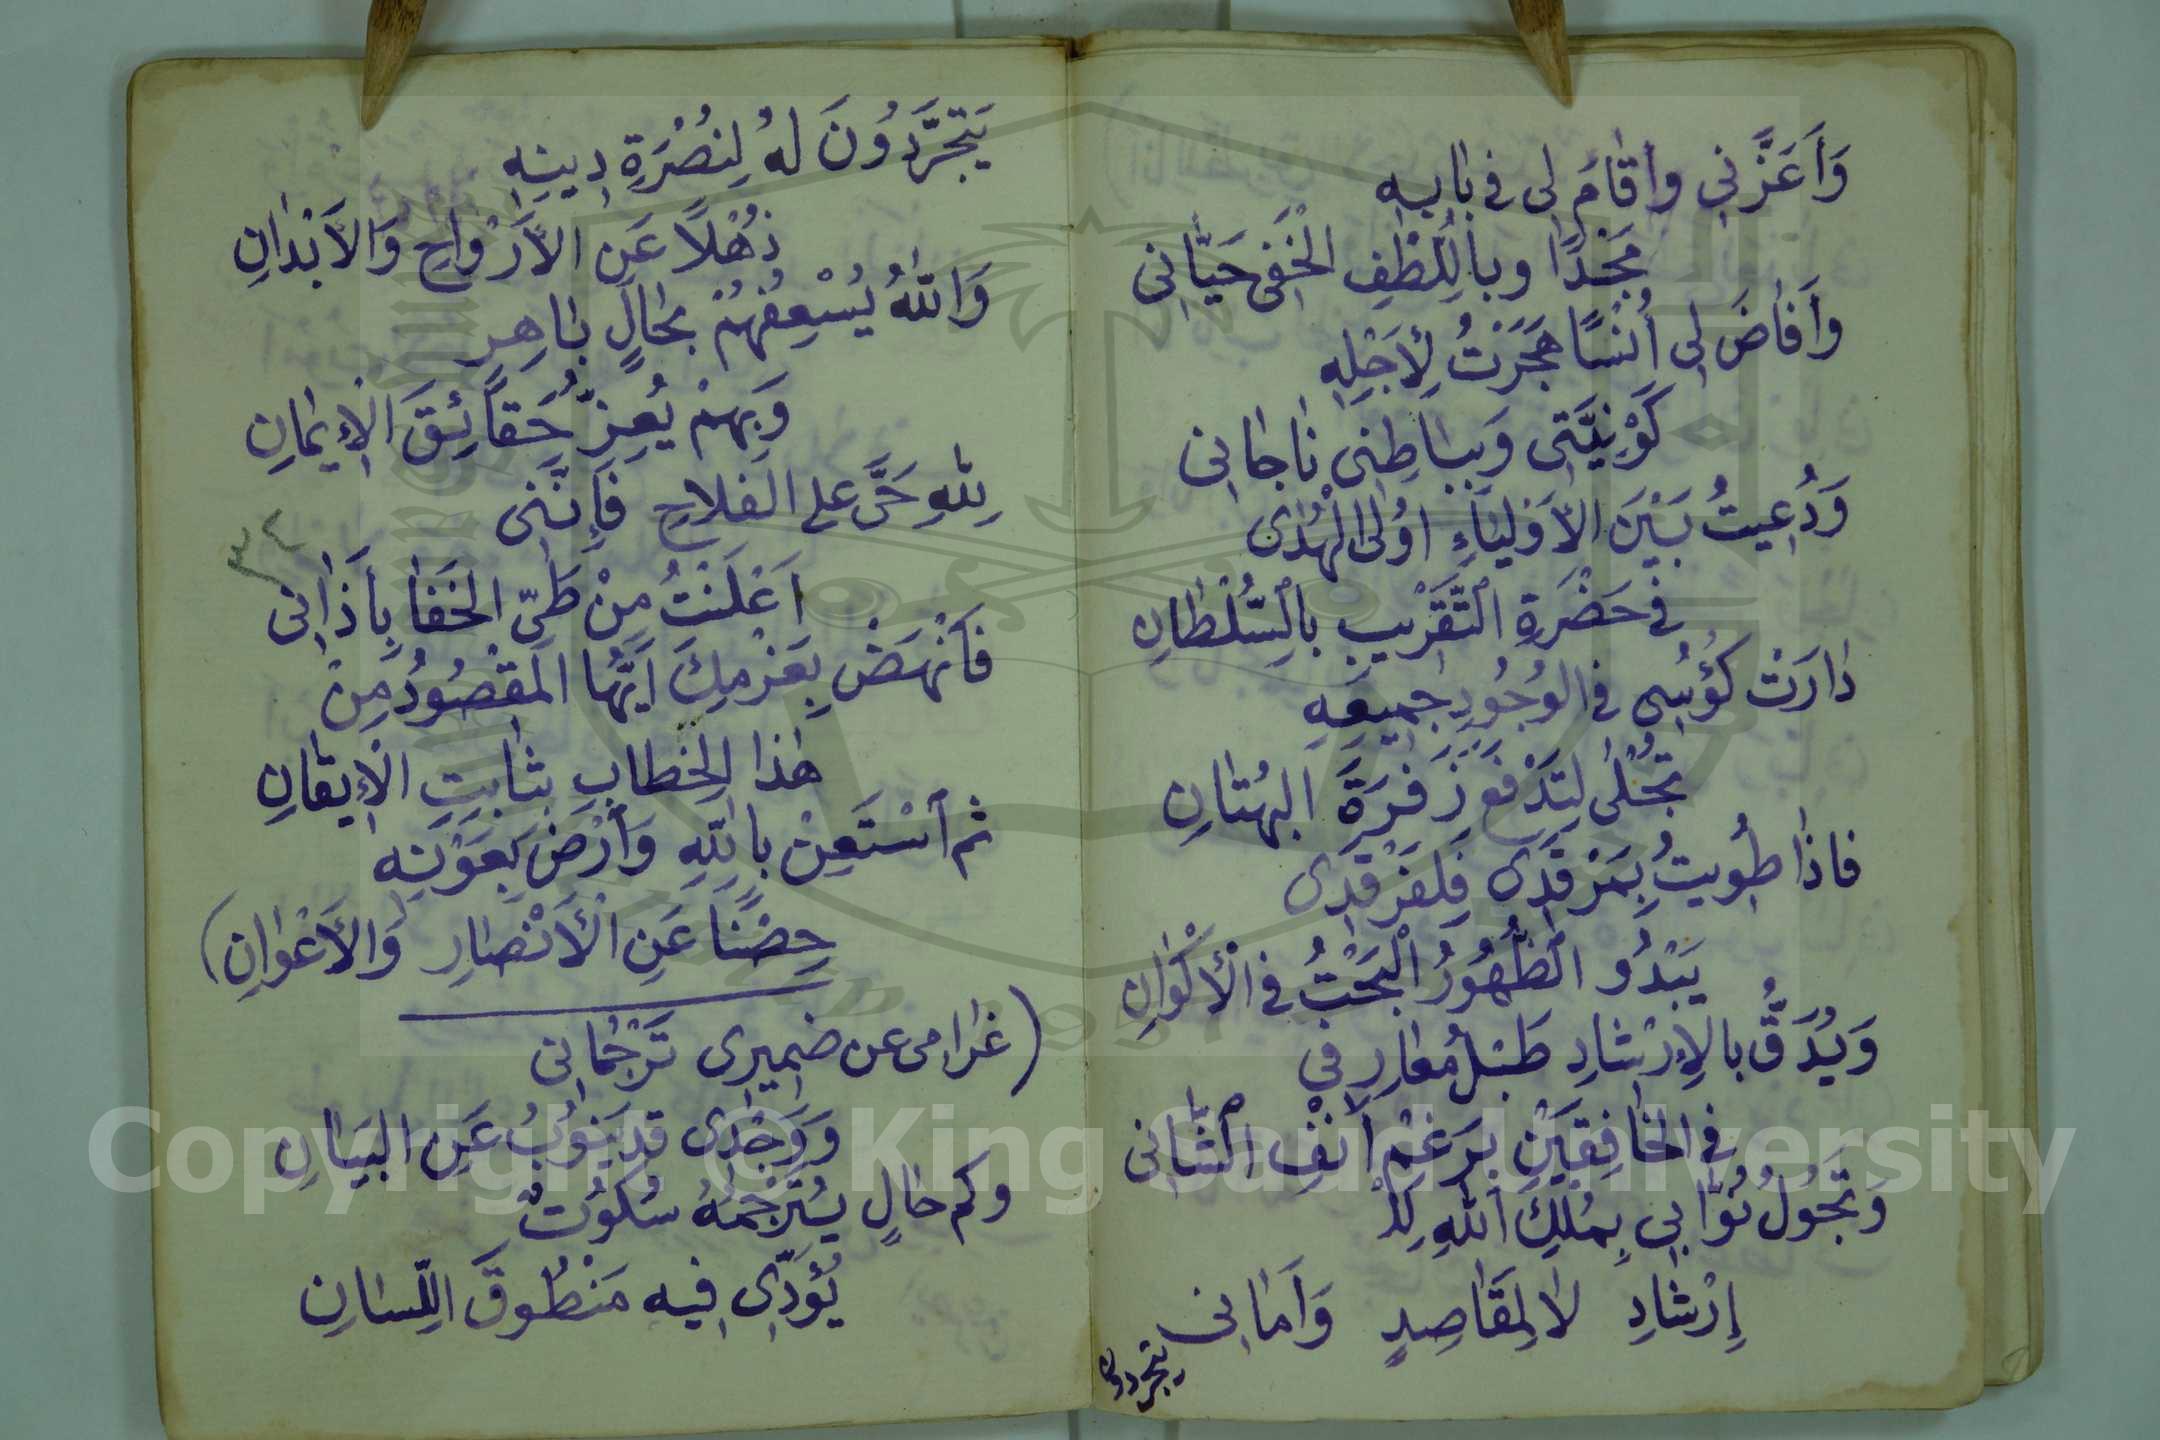 وَأَعَزَّنِي وأَقَامَ لِى فى بَابِهِ
مَجْدًا وبِاللُّطْفِ الْخَفِى حَيَّانِى
وأَفَاضَ لِى أُنْسًا هَجَرْتُ لِأَجْلِهِ
كَوْنِيَّتِى وَبِبَاطِنِى نَاجَانِى
وَدُعِيتُ بَيْنَ الأَوْلِيَاءِ اُولى الْهُدَى
فى حَضْرَةِ التَّقْرِيبِ بِالسُّلْطَانِ
دَارَتْ كُؤُسِى فى الوُجُودِ جَمِيعِهِ
تُجْلَى لِتَدْفَعَ زَفْرَةَ البُهْتَانِ
فاذَا طُوِيتُ بِمَرْقَدِى فَلِفَرْقَدِى
يَبْدُو الظُّهُورُ الْبَحْتُ فى الْأَكْوَانِ
وَيُدَقُّ بالإِرْشَادِ طَبْلُ مَعَارِفى
فى الخَافِقَيْنِ بِرَغْمِ اَنْفِ الشَّانِى
وَتَجُولُ نُوَّابِى بِمُلْكِ اللهِ لِلْ
إِرْشَادِ لاَ لِمَقَاصِدٍ وَأَمَانِى
يتجردون
يَتَجَرَّدُونَ لهُ لِنُصْرَةِ دِينِهِ
ذُهْلاً عَنِ الأَرْوَاحِ وَالأَبْدَانِ
وَاللهُ يُسْعِفُهُمْ بحَالٍ بَاهِرٍ
وَبِهِمْ يُعِزُّ حَقَائِقَ الْإِيمَانِ
لِلهِ حَىَّ على الفَلاَحِ فَإِنَّنِى
اَعْلَنْتُ مِنْ طَىِّ الخَفَا بِأَذَانِى
فَانْهَضْ بِعَزْمِكَ اَيُّهَا المَقْصُودُ مِنْ
هَذَا الخِطَابِ بثَابِتِ الْإِيقَانِ
ثم اسْتَعِنْ بِاللهِ وَارْضَ بِعَوْنِهِ
حِصْنًا عَنِ الْأَنْصَارِ وَالأَعْوَانِ)
(غرَامى عن ضمِيرِى تَرْجُمَانِى
وَوَجْدِى قد يَنُوبُ عَنِ البَيَانِ
وكَم حَالٍ يُتَرْجِمُهُ سُكُوتٌ
يُؤَدِّى فِيهِ مَنْطُوقَ اللِّسَانِ
٣٢
Copyright © King Saud University